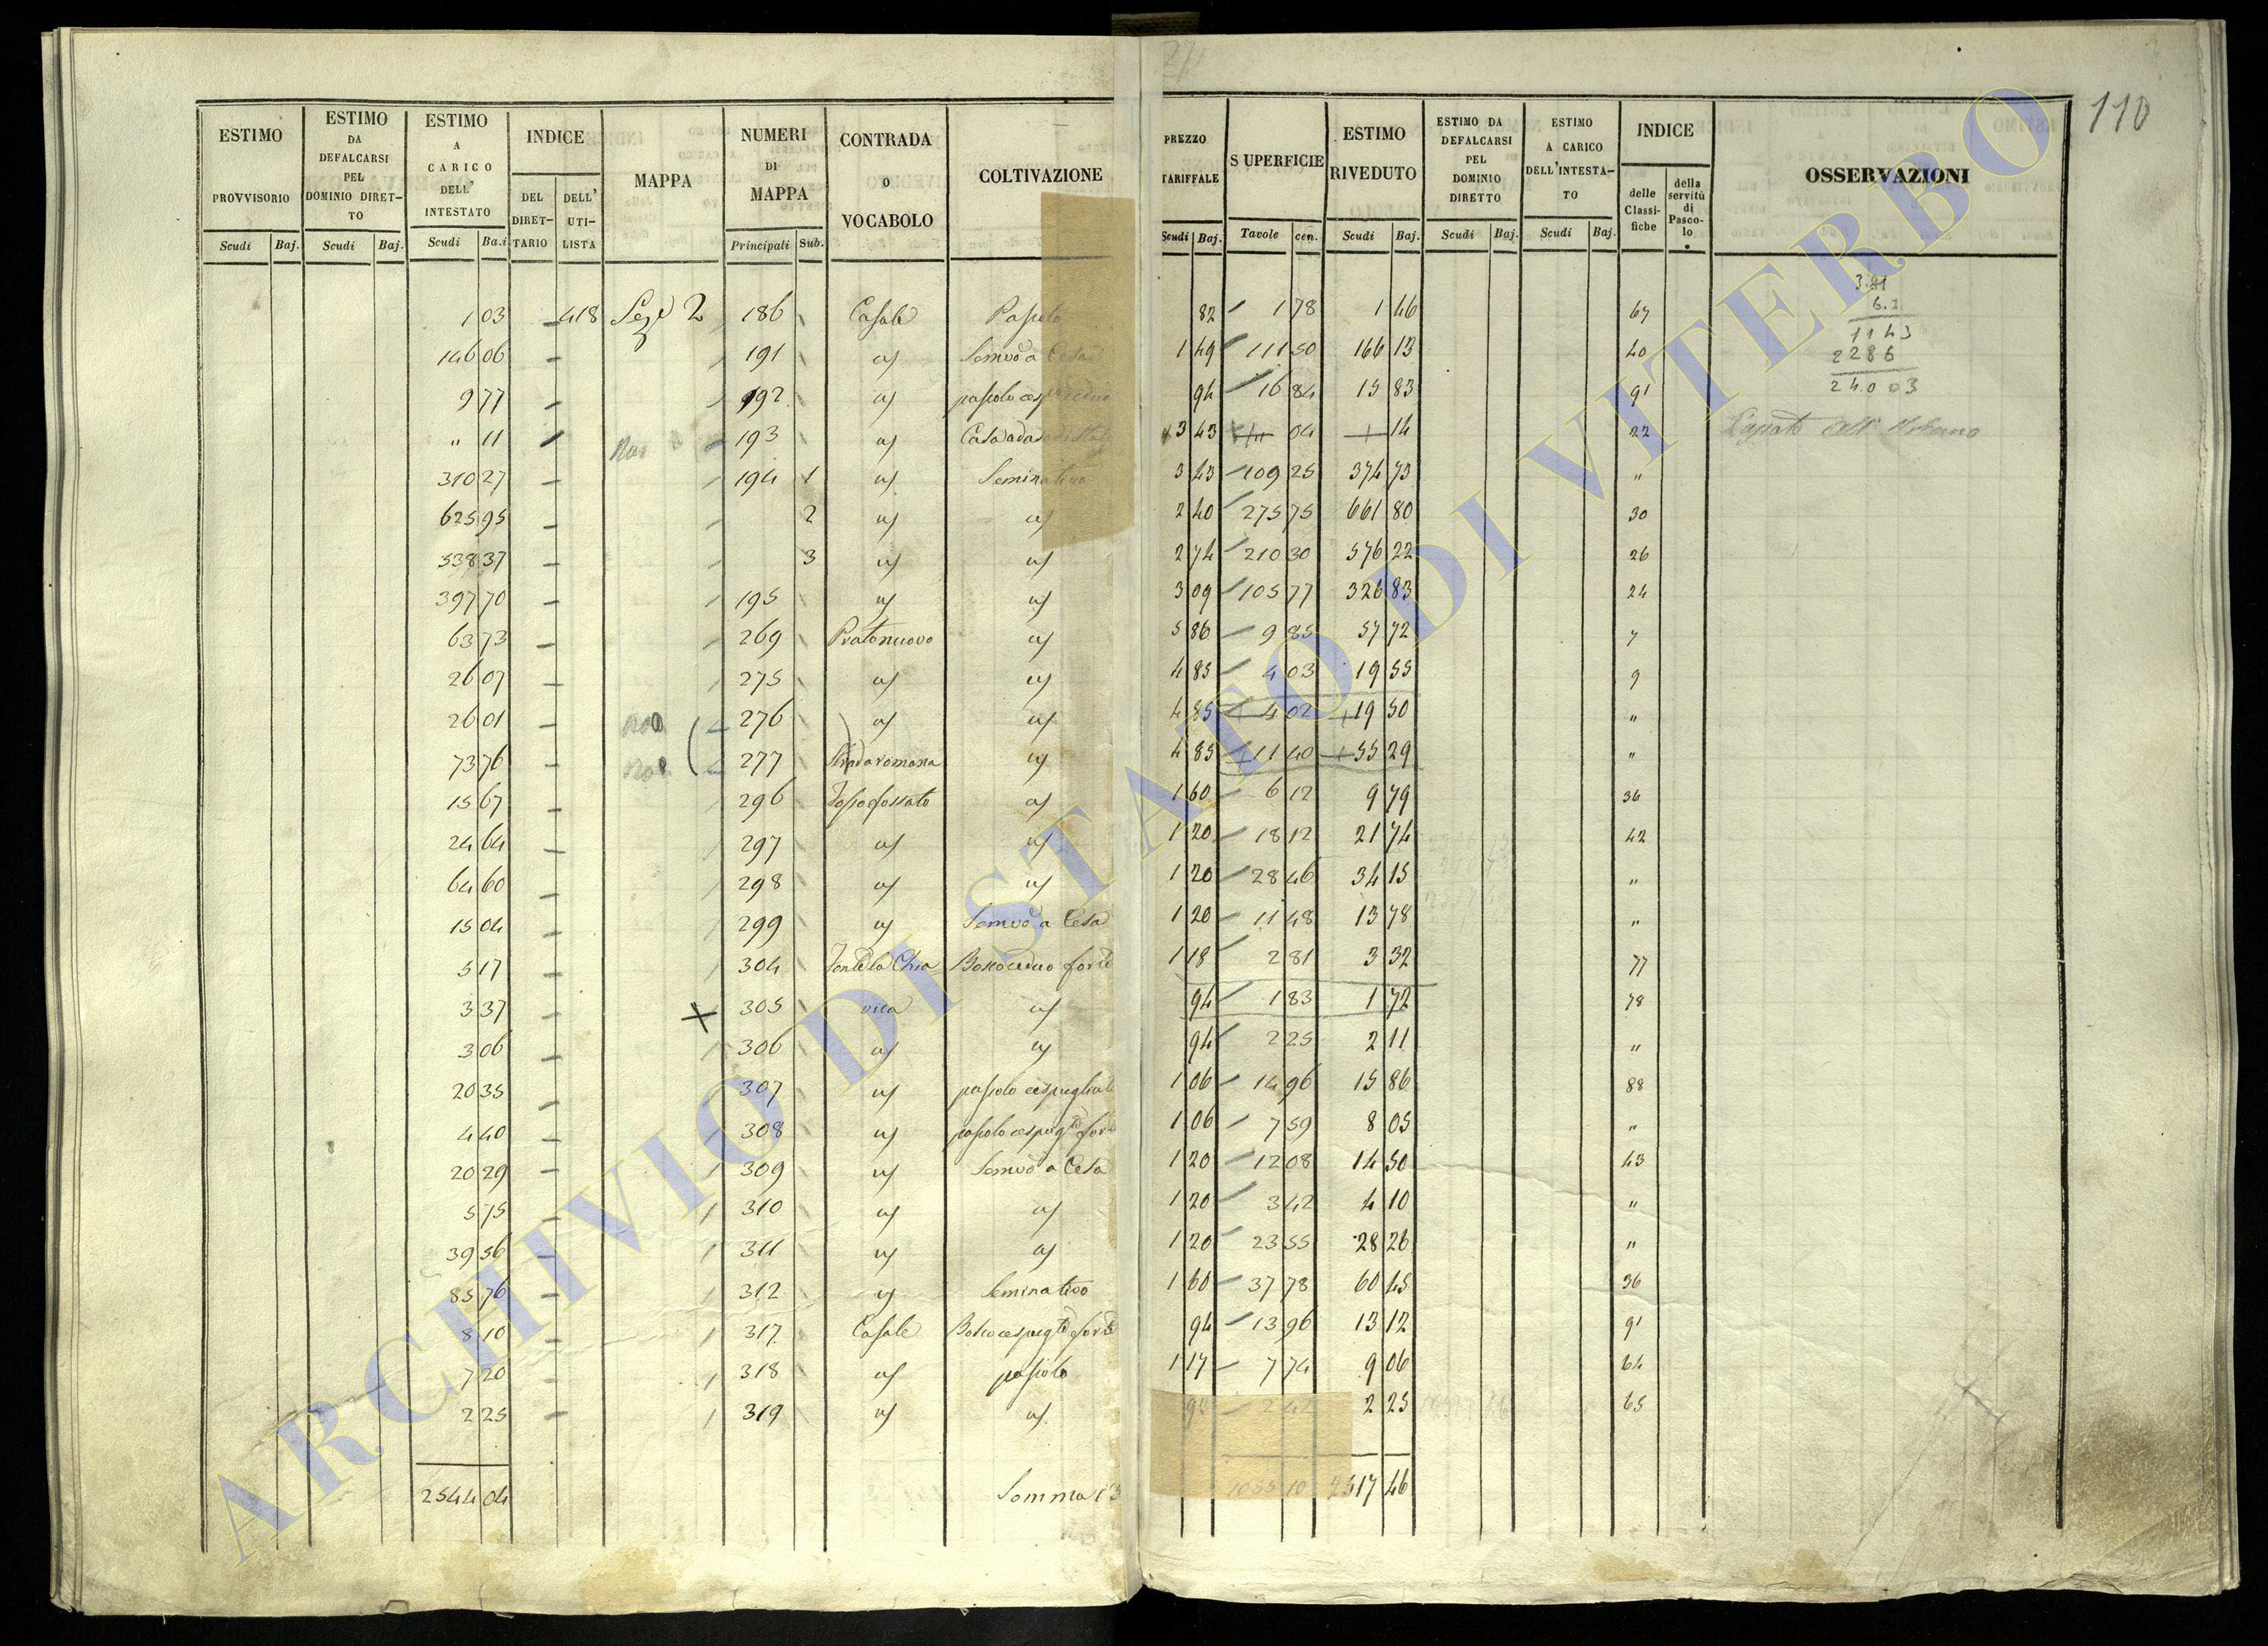 110
ESTIMO PROVVISORIO Scudi Baj.
ESTIMO DA DEFALCARSI PEL DOMINIO DIRETTO Scudi Baj.
ESTIMO A CARICO DELL' INTESTATO Scudi Ba.i
INDICE DEL DIRETTARIO DELL' UTILISTA
MAPPA
NUMERI DI MAPPA Principali Sub.
CONTRADA O VOCABOLO
COLTIVAZIONE
PREZZO TARIFFALE Scudi Baj.
SUPERFICIE Tavole cen.
ESTIMO RIVEDUTO Scudi Baj.
ESTIMO DA DEFALCARSI PEL DOMINIO DIRETTO Scudi Baj.
ESTIMO A CARICO DELL'INTESTATO Scudi Baj.
INDICE delle Classifiche della servitù di Pascolo
OSSERVAZIONI
1 03 – 418 Seze 2 186 Casale Pascolo 82 1 78 1 46 67
146 06 – 191 " Semvo a Cesa 1 49 111 50 166 13 40
9 77 – 192 " pascolo 94 16 84 15 83 91
" 11 – 193 " Casa 3 43 04 14 22
310 27 – 194 1 " Seminativo 3 43 109 25 374 73 "
625 95 – 2 " " 2 40 275 75 661 80 30
538 37 – 3 " " 2 74 210 30 576 22 26
397 70 – 195 " " 3 09 105 77 326 83 24
63 73 – 269 Pratonuovo " 5 86 9 85 57 72 7
26 07 – 275 " " 4 85 4 03 19 55 9
26 01 – 276 " " 4 85 4 02 19 50 "
73 76 – 277 Strada romana " 4 85 11 40 55 29 "
15 67 – 296 Fossofossato " 1 60 6 12 9 79 36
24 64 – 297 " " 1 20 18 12 21 74 42
64 60 – 298 " " 1 20 28 46 34 15 "
15 04 – 299 " Semvo a Cesa 1 20 11 48 13 78 "
5 17 – 304 Fontela Chia Bosco ceduo forte 1 18 2 81 3 32 77
3 37 – X 305 rica " 94 1 83 1 72 78
3 06 – 306 " " 94 2 25 2 11 "
20 35 – 307 " pascolo cespugliato 1 06 14 96 15 86 88
4 40 – 308 " pascolo cespugto forte 1 06 7 59 8 05 "
20 29 – 309 " Semvo a Cesa 1 20 12 08 14 50 43
5 75 – 310 " " 1 20 3 42 4 10 "
39 56 – 311 " " 1 20 23 55 28 26 "
85 76 – 312 " Seminativo 1 60 37 78 60 45 36
8 10 – 317 Casale Bosco cespugto forte 94 13 96 13 12 91
7 20 – 318 " pascolo 1 17 7 74 9 06 64
2 25 – 319 " " 2 42 2 25 65
2544 04 Somma 1055 10 2517 46
3.81
6.3
1143
2286
24.003
ARCHIVIO DI STATO DI VITERBO